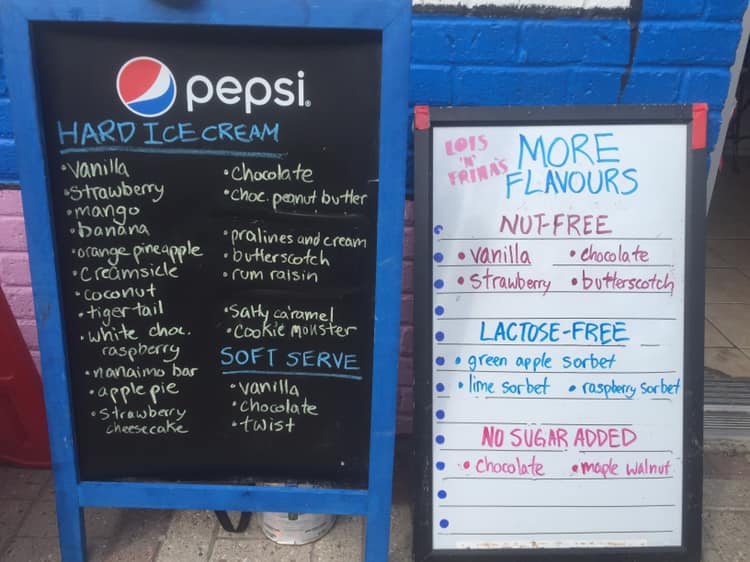 pepsi
HARD ICE CREAM
• Vanilla
• Strawberry
• mango
• banana
• orange pineapple
• Creamsicle
• coconut
• tiger tail
• white choc.
raspberry
• nanaimo bar
• apple pie
• Strawberry
cheesecake
• Chocolate
• choc. peanut butter
• pralines and cream
• butterscotch
• rum raisin
• Salty caramel
• Cookie monster
SOFT SERVE
• vanilla
• chocolate
• twist
LOIS
'N'
FRIMA'S
MORE
FLAVOURS
NUT-FREE
• vanilla • chocolate
• Strawberry • butterscotch
LACTOSE-FREE
• green apple sorbet
• lime sorbet • raspberry sorbet
NO SUGAR ADDED
• chocolate • maple walnut